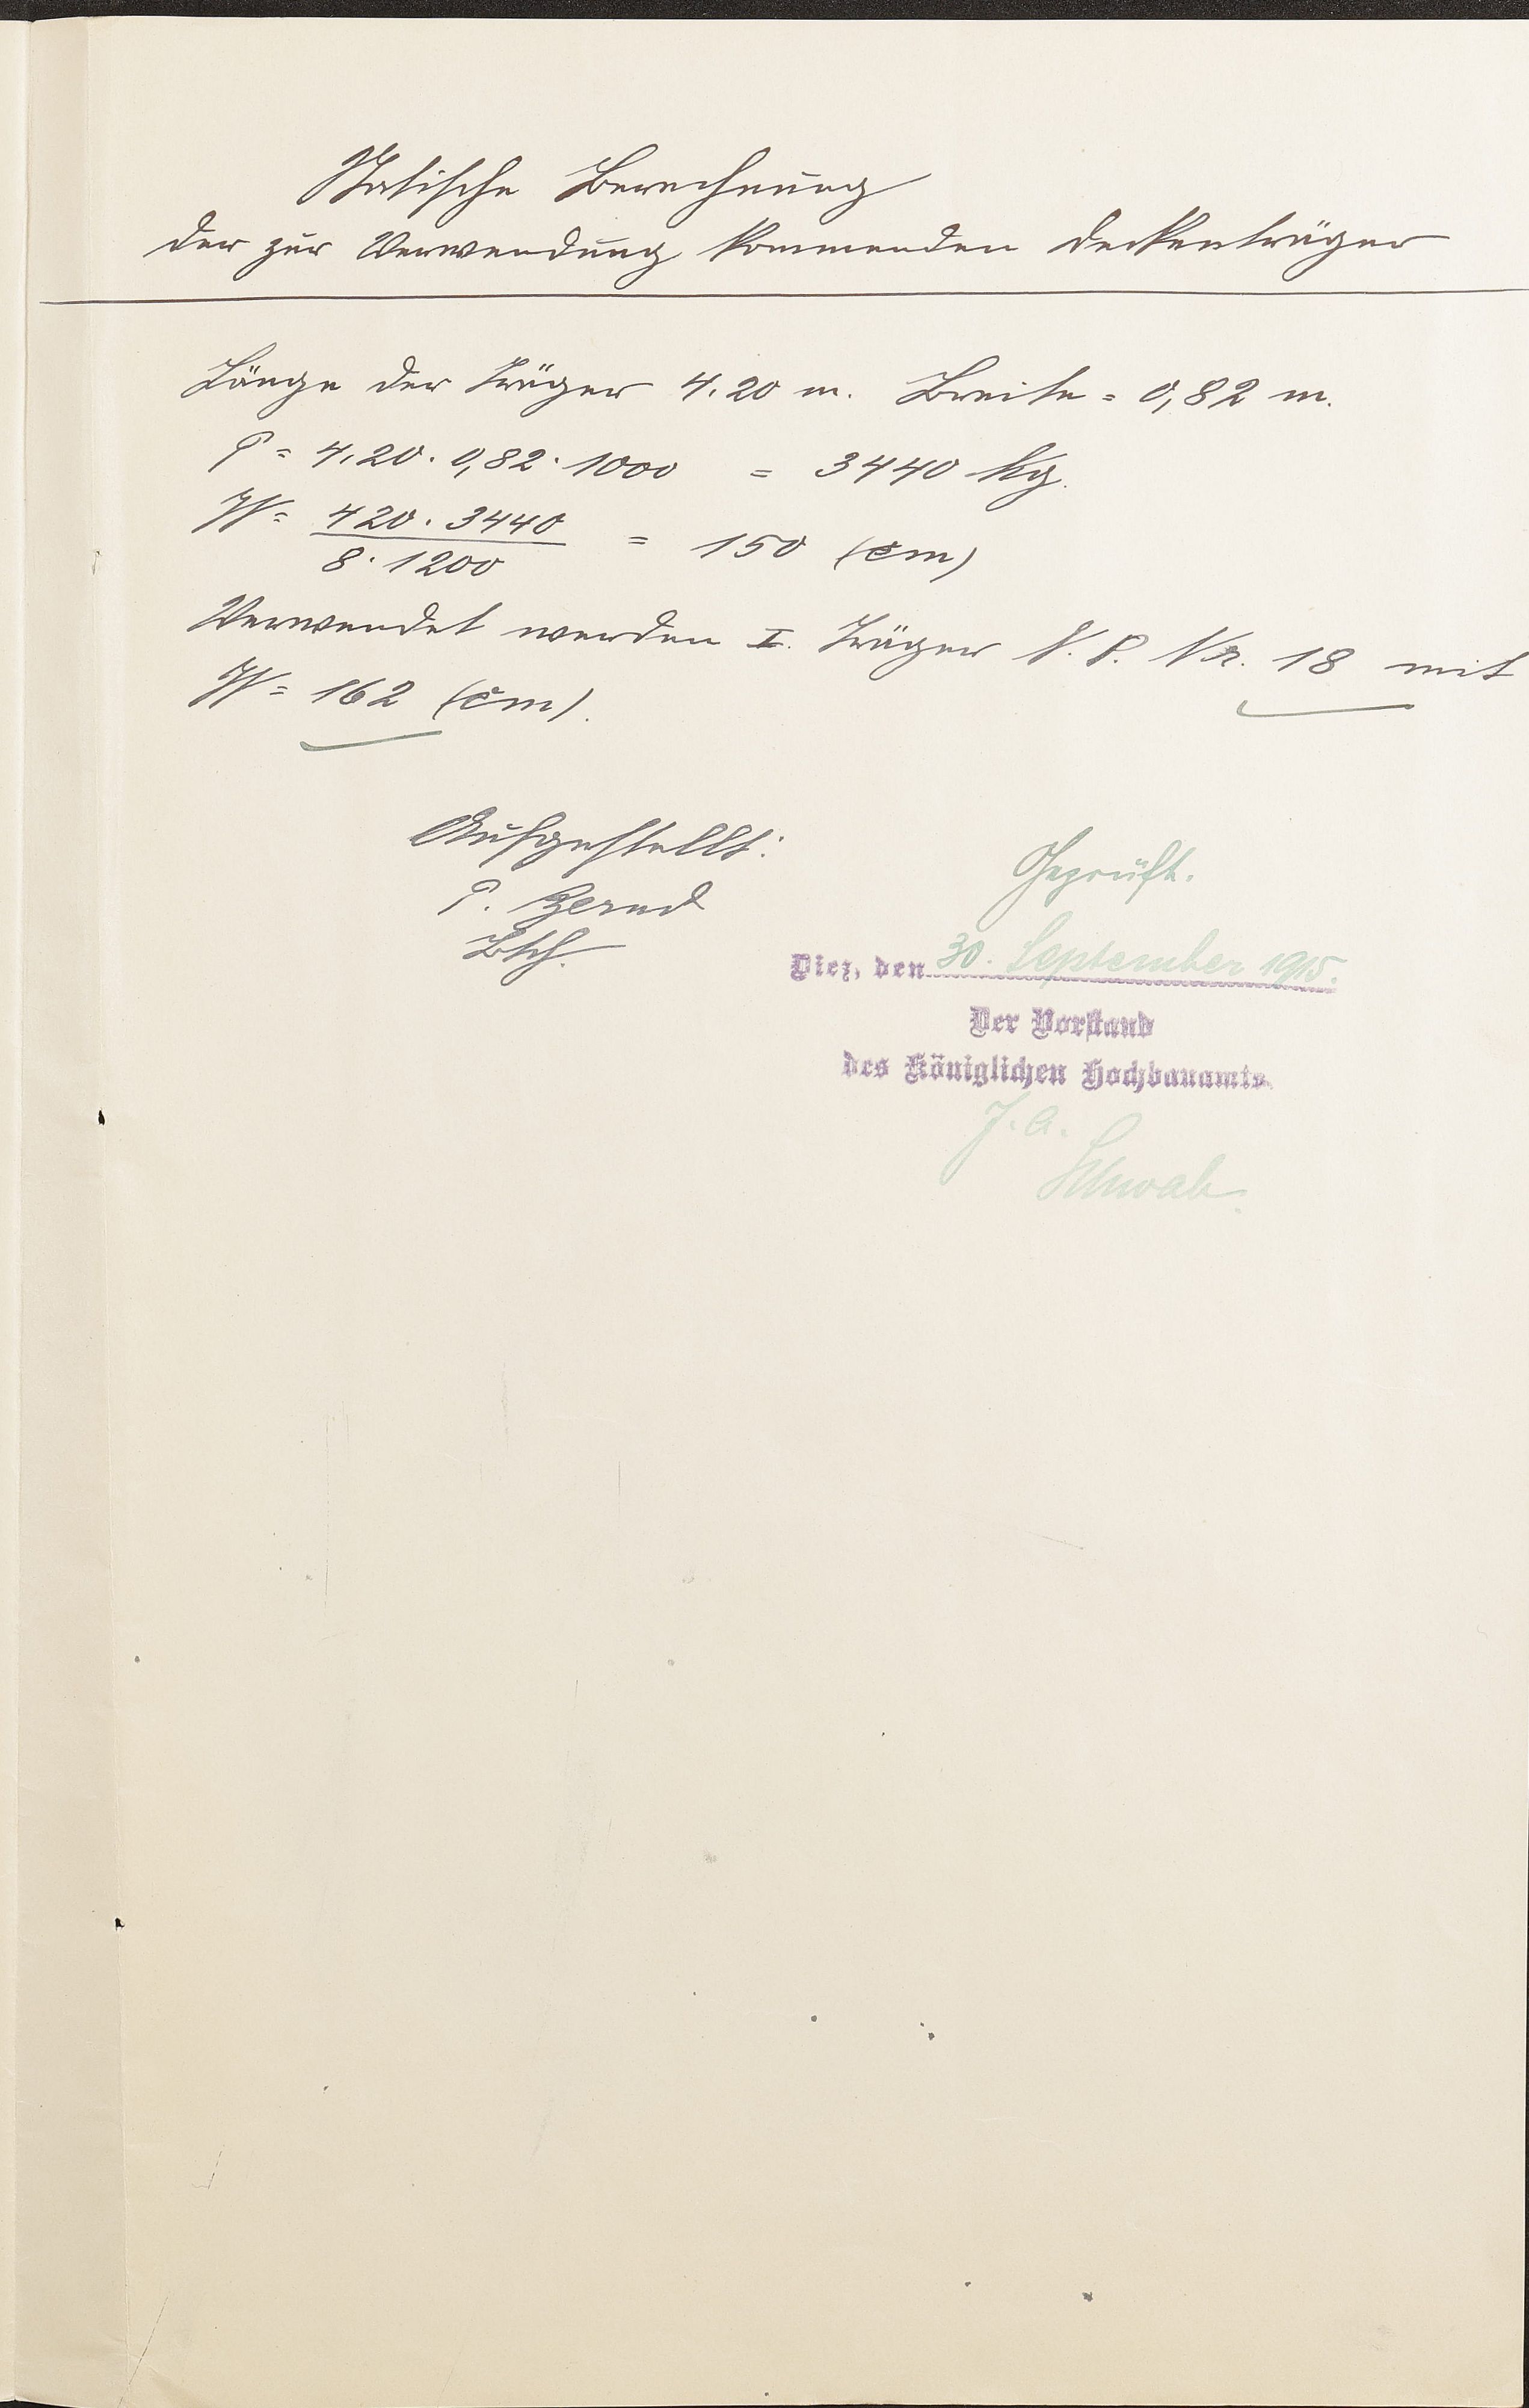 Statische Berechnung
der zur Verwendung kommenden Deckenträger
Länge der Träger 4,20 m. Breite = 0,82 m.
P = 4,20 · 0,82 · 1000 = 3440 kg.
W = 420 · 3440 / 8 · 1200 = 150 (cm)
Verwendet werden I. Träger N. P. Nr. 18 mit
W = 162 (cm).
Aufgestellt:
P.
Geprüft.
Diez, den 30. September 1915.
Der Vorstand
des Königlichen Hochbauamts
J. A.
Schwab